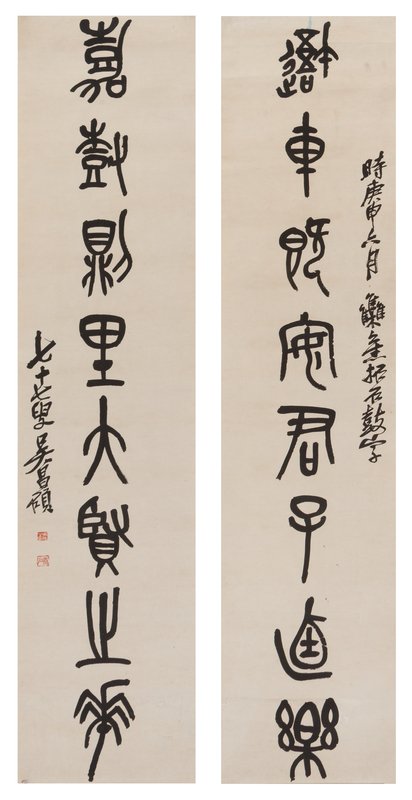 時庚申六月集舊拓石鼓字
吾車既安君子逌樂
嘉樹則里大賢止華
七十七叟吳昌碩